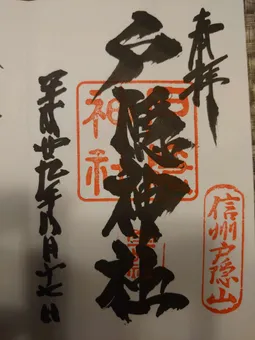 奉拝
信州戸隠山
戸隠神社
戸隠神社
平成廿九年八月十七日